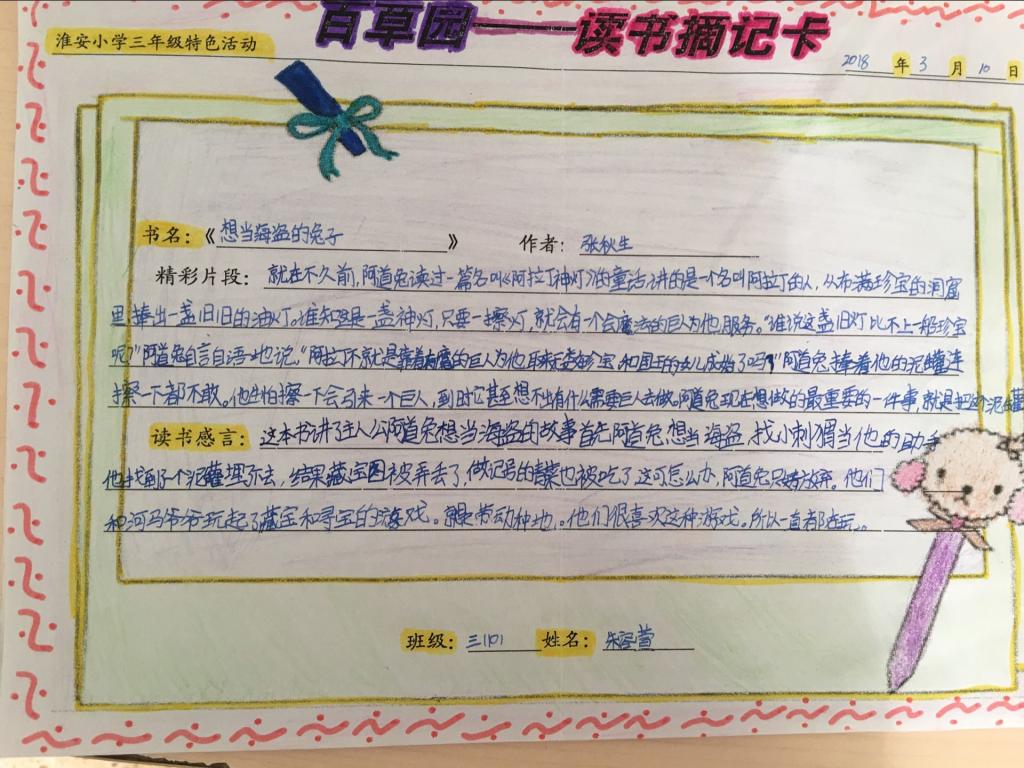 百草园——读书摘记卡
淮安小学三年级特色活动
2018 年 3 月 10 日
书名：《想当海盗的兔子》 作者：张秋生
精彩片段：就在不久前，阿道兔读过一篇名叫《阿拉丁神灯》的童话讲的是一个名叫阿拉丁的人，从布满珍宝的洞窟
里捧出一盏旧旧的油灯。谁知这是一盏神灯，只要一擦灯，就会有一个会魔法的巨人为他服务。“谁说这盏旧灯比不上一船珍宝
呢？”阿道兔自言自语地说，“阿拉丁不就是靠着有魔的巨人为他取来无数珍宝，和国王的女儿成婚了吗？”阿道兔捧着他的泥罐连
擦一下都不敢。他生怕擦一下会弓来一个巨人，到时它甚至想不出有什么需要巨人去做。阿道兔现在想做的最重要的一件事，就是把这个泥
读书感言：这本书讲了主人公阿道兔想当海盗的故事首先阿道兔，想当海盗，找小刺猬当他的助手
他找到了一个泥罐埋下去，结果藏宝图被弄丢了，做记号的青菜也被吃了，这可怎么办，阿道兔只好放弃。他们
和河马爷爷玩起了藏宝和寻宝的游戏。就是劳动种地，。他们很喜欢这种游戏。所以一直都在玩。。
班级：三(10) 姓名：朱萱